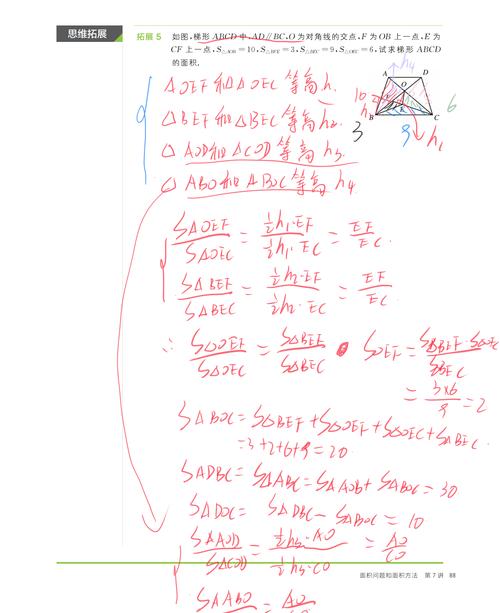 思维拓展
拓展 5 如图,梯形 ABCD 中,AD∥BC,O 为对角线的交点,F 为 OB 上一点,E 为
CF 上一点,S△AOB=10,S△BEF=3,S△BEC=9,S△OEC=6,试求梯形 ABCD
的面积.
△OEF和△OEC等高h1
△BEF和△BEC等高h2.
△AOD和△COD等高h3.
△ABO和△BOC等高h4
h4
A D
10 O
h 6
B C
3 9 h1
S△OEF/S△OEC = ½h1·EF/½h1·EC = EF/EC.
S△BEF/S△BEC = ½h2·EF/½h2·EC = EF/EC.
∴ S△OEF/S△OEC = S△BEF/S△BEC SOEF = S△BEF·S△OEC/S△BEC
= 3×6/9 = 2
S△BOC = S△BEF + S△OEF + S△OEC + S△BEC.
= 3+2+6+9 = 20.
S△DBC = S△ABC = S△AOB + S△BOC = 30
S△DOC = S△DBC − S△BOC = 10
S△AOD/S△COD = ½h3·AO/½h3·CO = AO/CO
S△ABO = AO
面积问题和面积方法 第 7 讲 88